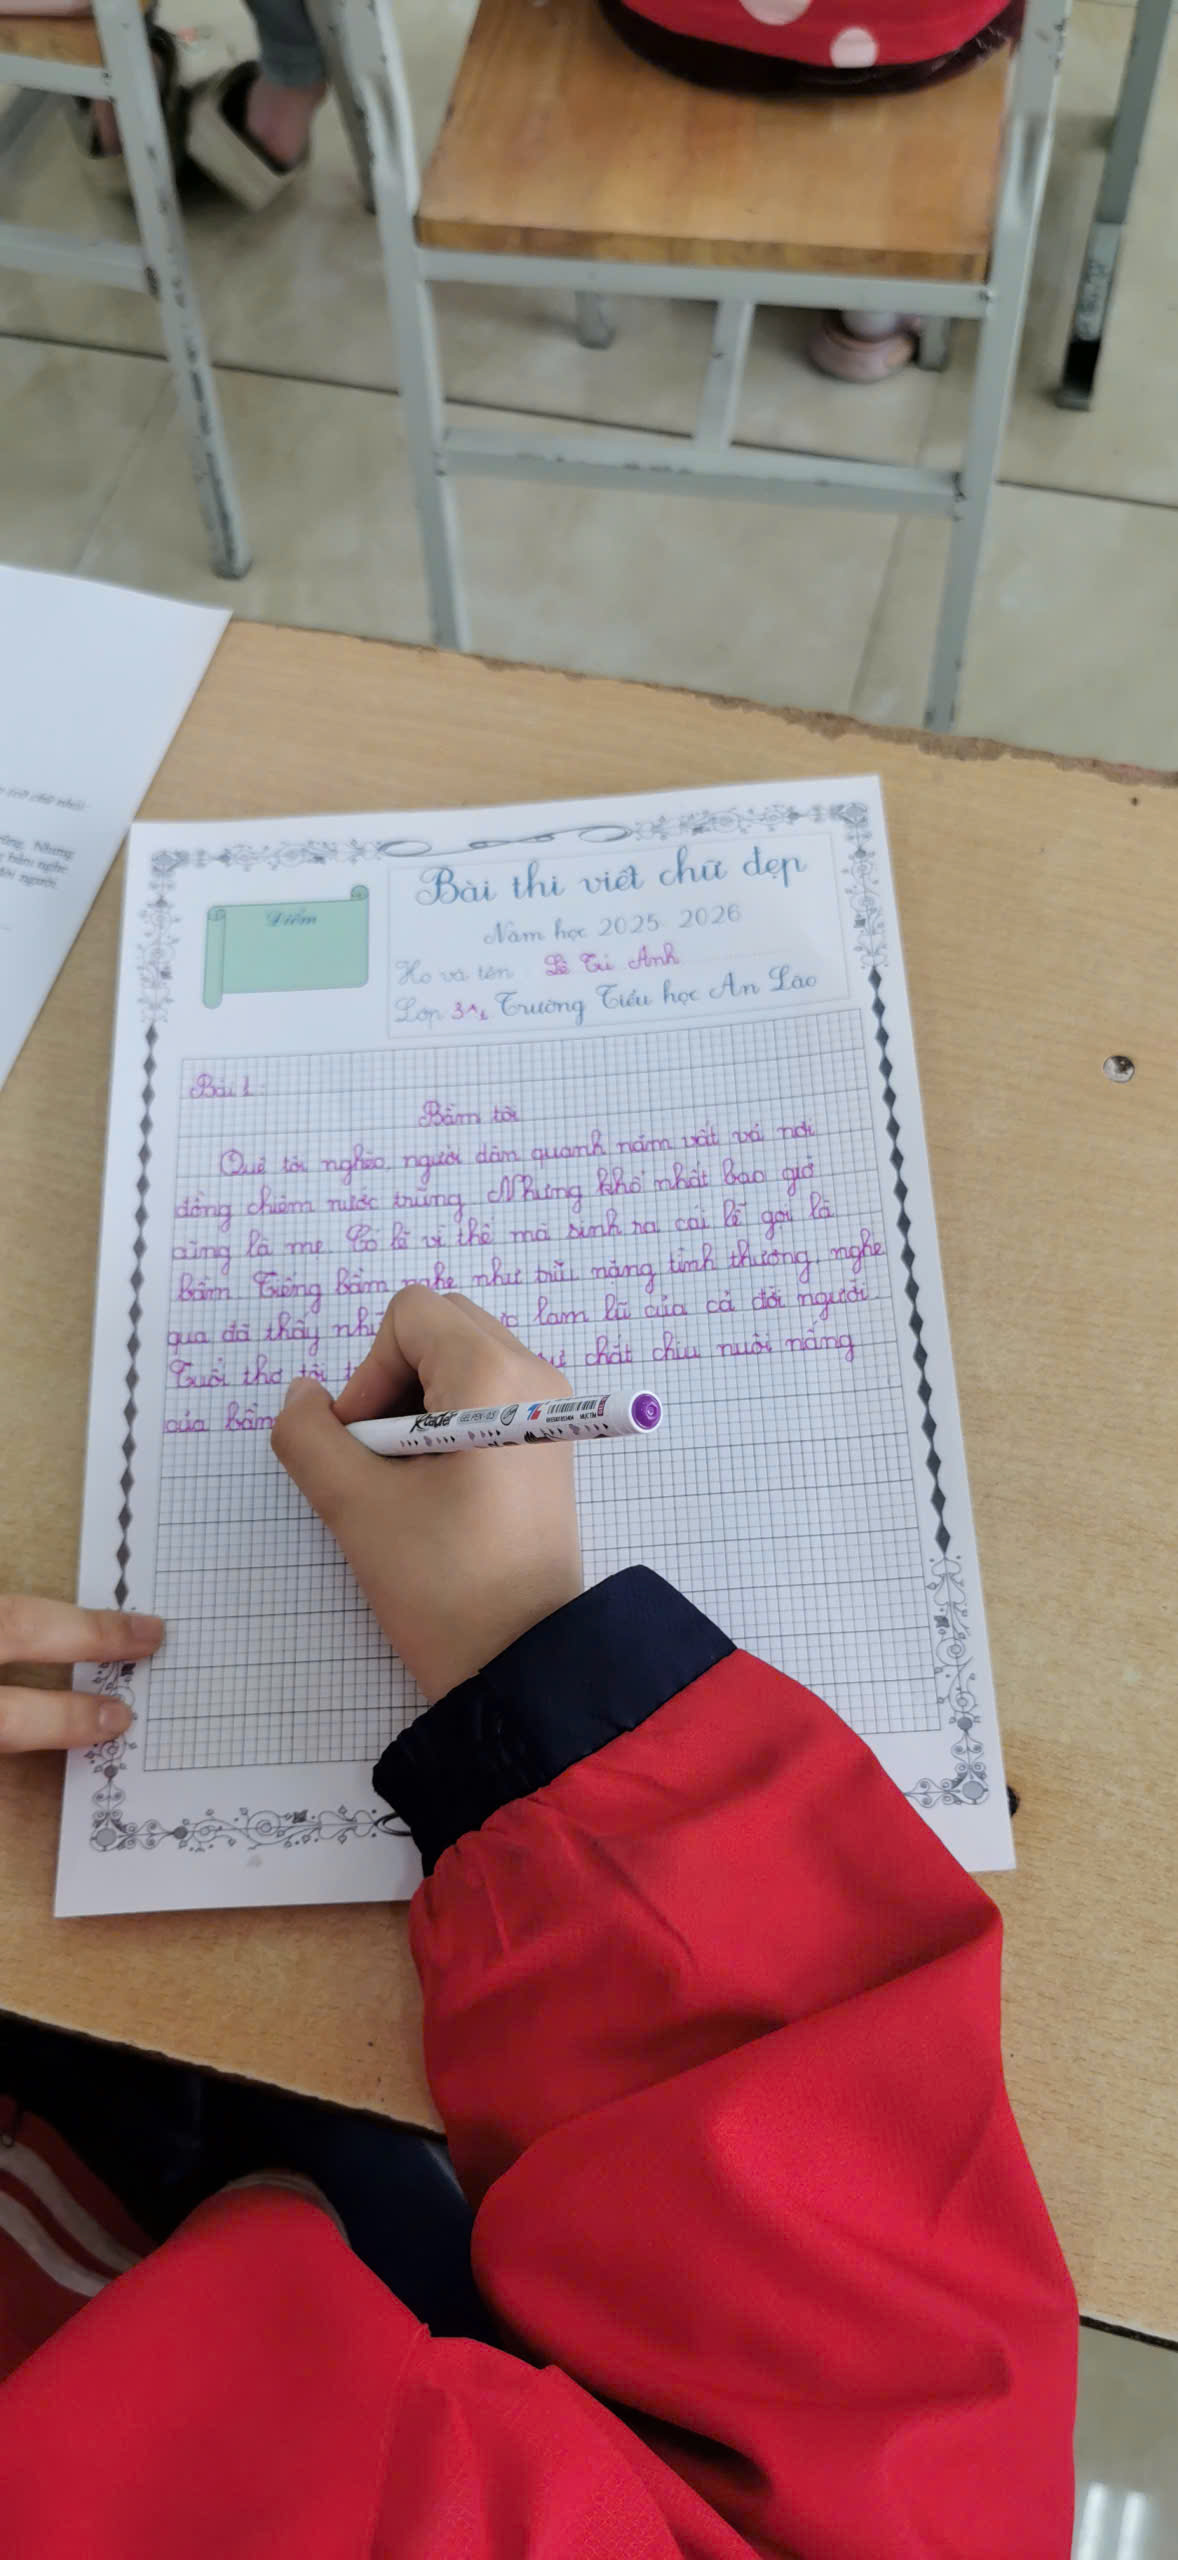 Điểm
Bài thi viết chữ đẹp
Năm học 2025 2026
Họ và tên Lê Tú Anh
Lớp 3A1 Trường Tiểu học An Lão
Bài 1
Bầm tôi
Quê tôi nghèo, người dân quanh năm vất vả nơi
đồng chiêm nước trũng. Nhưng khổ nhất bao giờ
cũng là mẹ. Có lẽ vì thế mà sinh ra cái lẽ gọi là
Bầm. Tiếng Bầm nghe như trĩu nặng tình thương, nghe
qua đã thấy lam lũ của cả đời người
Tuổi thơ tôi chắt chiu nuôi nấng
của Bầm
Nhưng
GEL PEN 0.5
MỰC TÍM